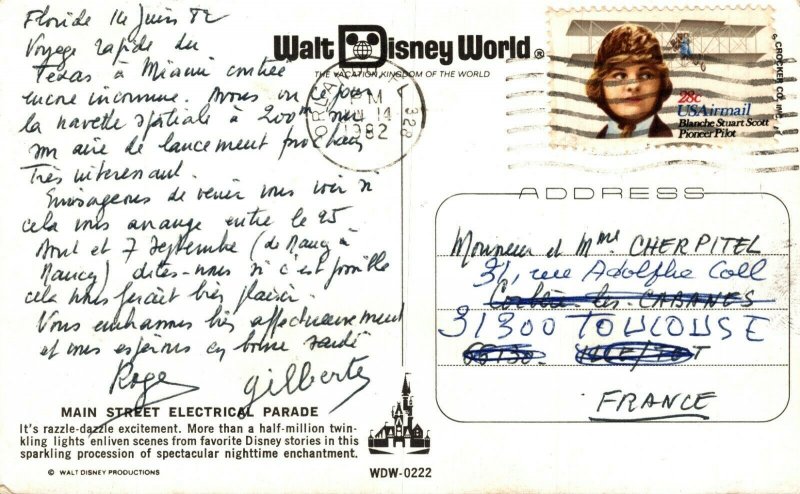 Floride 14 Juin 82
Voyage rapide du
Texas à Miami contrée
encore inconnue. Avons vu ce jour
la navette spatiale à 200m sur
son aire de lancement prochain
Très intéressant.
Envisageons de venir vous voir si
cela vous arrange entre le 25
Aout et 7 Septembre (de Nancy à
Nancy) dites-nous si c'est possible
cela nous ferait bien plaisir.
Vous embrassons bien affectueusement
et vous espérons en bonne santé
Roger Gilberte
MAIN STREET ELECTRICAL PARADE
It's razzle-dazzle excitement. More than a half-million twin-
kling lights enliven scenes from favorite Disney stories in this
sparkling procession of spectacular nighttime enchantment.
© WALT DISNEY PRODUCTIONS
Walt Disney World®
THE VACATION KINGDOM OF THE WORLD
ORLANDO
PM
14
1982
328
28c
USAirmail
Blanche Stuart Scott
Pioneer Pilot
© CROCKER CO. INC.
ADDRESS
Monsieur et Mme CHERPITEL
31, rue Adolphe Coll
les CABANES
31300 TOULOUSE
FRANCE
WDW-0222